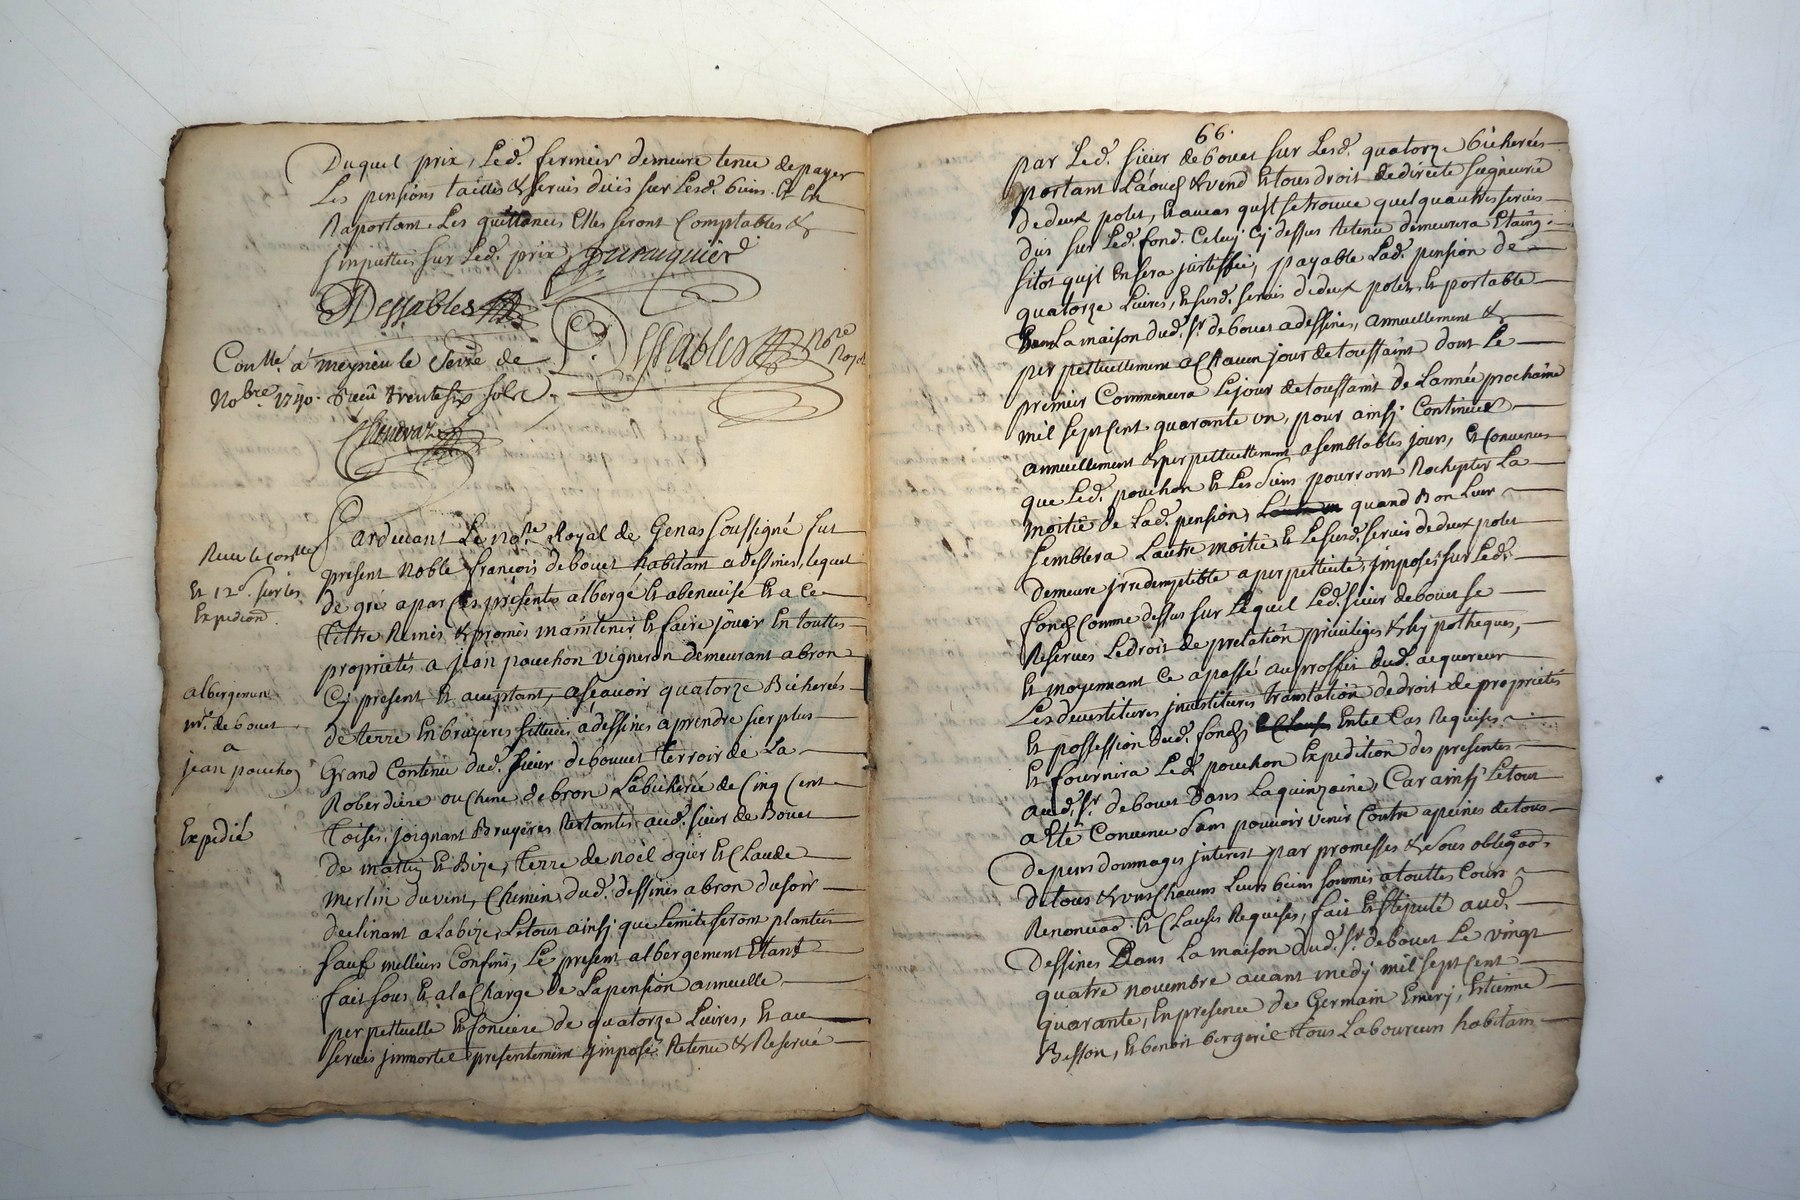 Duquel prix, Led. fermier demeure tenu de payer
Les pensions tailles & servis düs sur Lesd. biens. Et En
Raportant Les quittances Elles seront Comptables &
imputtées sur Led. prix,
Dessables
P. Dessables No.re Royal
Con.llé à meyzieu le Seize de
No.bre 1740. Reçû trente six sols
Chenavaz
Pardevant Le No.re Royal de Genas Soussigné fut
présent Noble françois debouet habitant a dessines, lequel
de gré a par Ces présentes albergé Et abenevisé Et a Ce
titre Remis & promis maintenir Et faire jouir En touttes
proprietés a jean pouchon vigneron demeurant a bron
Cy present Et aceptant, a sçavoir quatorze Bicherées
de terre En bruyeres sittuées a dessines a prendre sur plus
Grand Contenu dud. sieur debouet terroir de La
Roberdiere ou Chene de bron Labicherée de Cinq Cent
toises, joignant Bruyeres Restantes aud. sieur de Bouet
de matin Et Bize, terre de noël ogier Et Claude
merlin du vent, Chemin dud. dessines a bron du soir
declinant a Labize, Le tout ainsi que Limite seront plantées
sauf meilleurs Confins, Le present albergement Etant
fait sous Et a la Charge de La pension annuelle
perpettuelle Et fonciere de quatorze Livres, Et au
servis jmmortel presentement jmposé Retenu & Reservé
Reçu le con.lle
Et 12 d. sur les
Expedions
albergement
M.r de bouet
a
jean pouchon
Expedié
66.
par Led. sieur debouet sur Lesd. quatorze bicherées
portant Laoud & vend Et tous droit de directe seigneurie
de deux polet, Et au cas qu'il se trouve quelqu'autres servis
dus sur Led. fond. Celuy Cy dessus Retenu demeurera Etaing
sitot qu'il En sera justiffié, payable Lad. pension de
quatorze Livres, Et susd. servis de deux polet Et portable
Dans La maison dud. Sr. de bouet a dessines, annuellement &
perpettuellement a Chacun jour de toussaint dont Le
premier Commencera Le jour de toussaint de Lannée prochaine
mil sept Cent quarante un, pour ainsi Continuer
annuellement & perpettuellement a semblables jours, Et Convenus
que Led. pouchon Et Les Siens pourront Rachepter La
moitié de Lad. pension, quand Bon Leur
semblera Lautre moitié Et Le susd. servis de deux polet
demeure jrredemptible a perpettuité, jmposés sur Led.
fond Comme dessus sur Lequel Led. sieur debouet se
Reserves Le droit de prelation privileges & hypotheques,
Et moyennant Ce a passé au proffit dud. acquereur
Les devestitures jnvestitures translation de droit de proprietés
Et possession dud. fond Entel Cas Requises
Et fournira Led. pouchon Expedition des presentes
aud. Sr. debouet Dans La quinzaine, Car ainsi Le tout
a Eté Convenu Sans pouvoir venir Contre a peines de tous
depens dommages jnterest par promesses & sous obligaon.
de tous & uns Chacuns Leurs biens soumis a touttes Cours
Renonciaon. Et Clauses Requises, fait Et stipulé aud.
Dessines Dans La maison dud. Sr. debouet Le vingt
quatre novembre avant midy mil sept Cent
quarante, En presence de Germain Emery, Etienne
Besson, Et benoit bergerie tous Laboureurs habitans